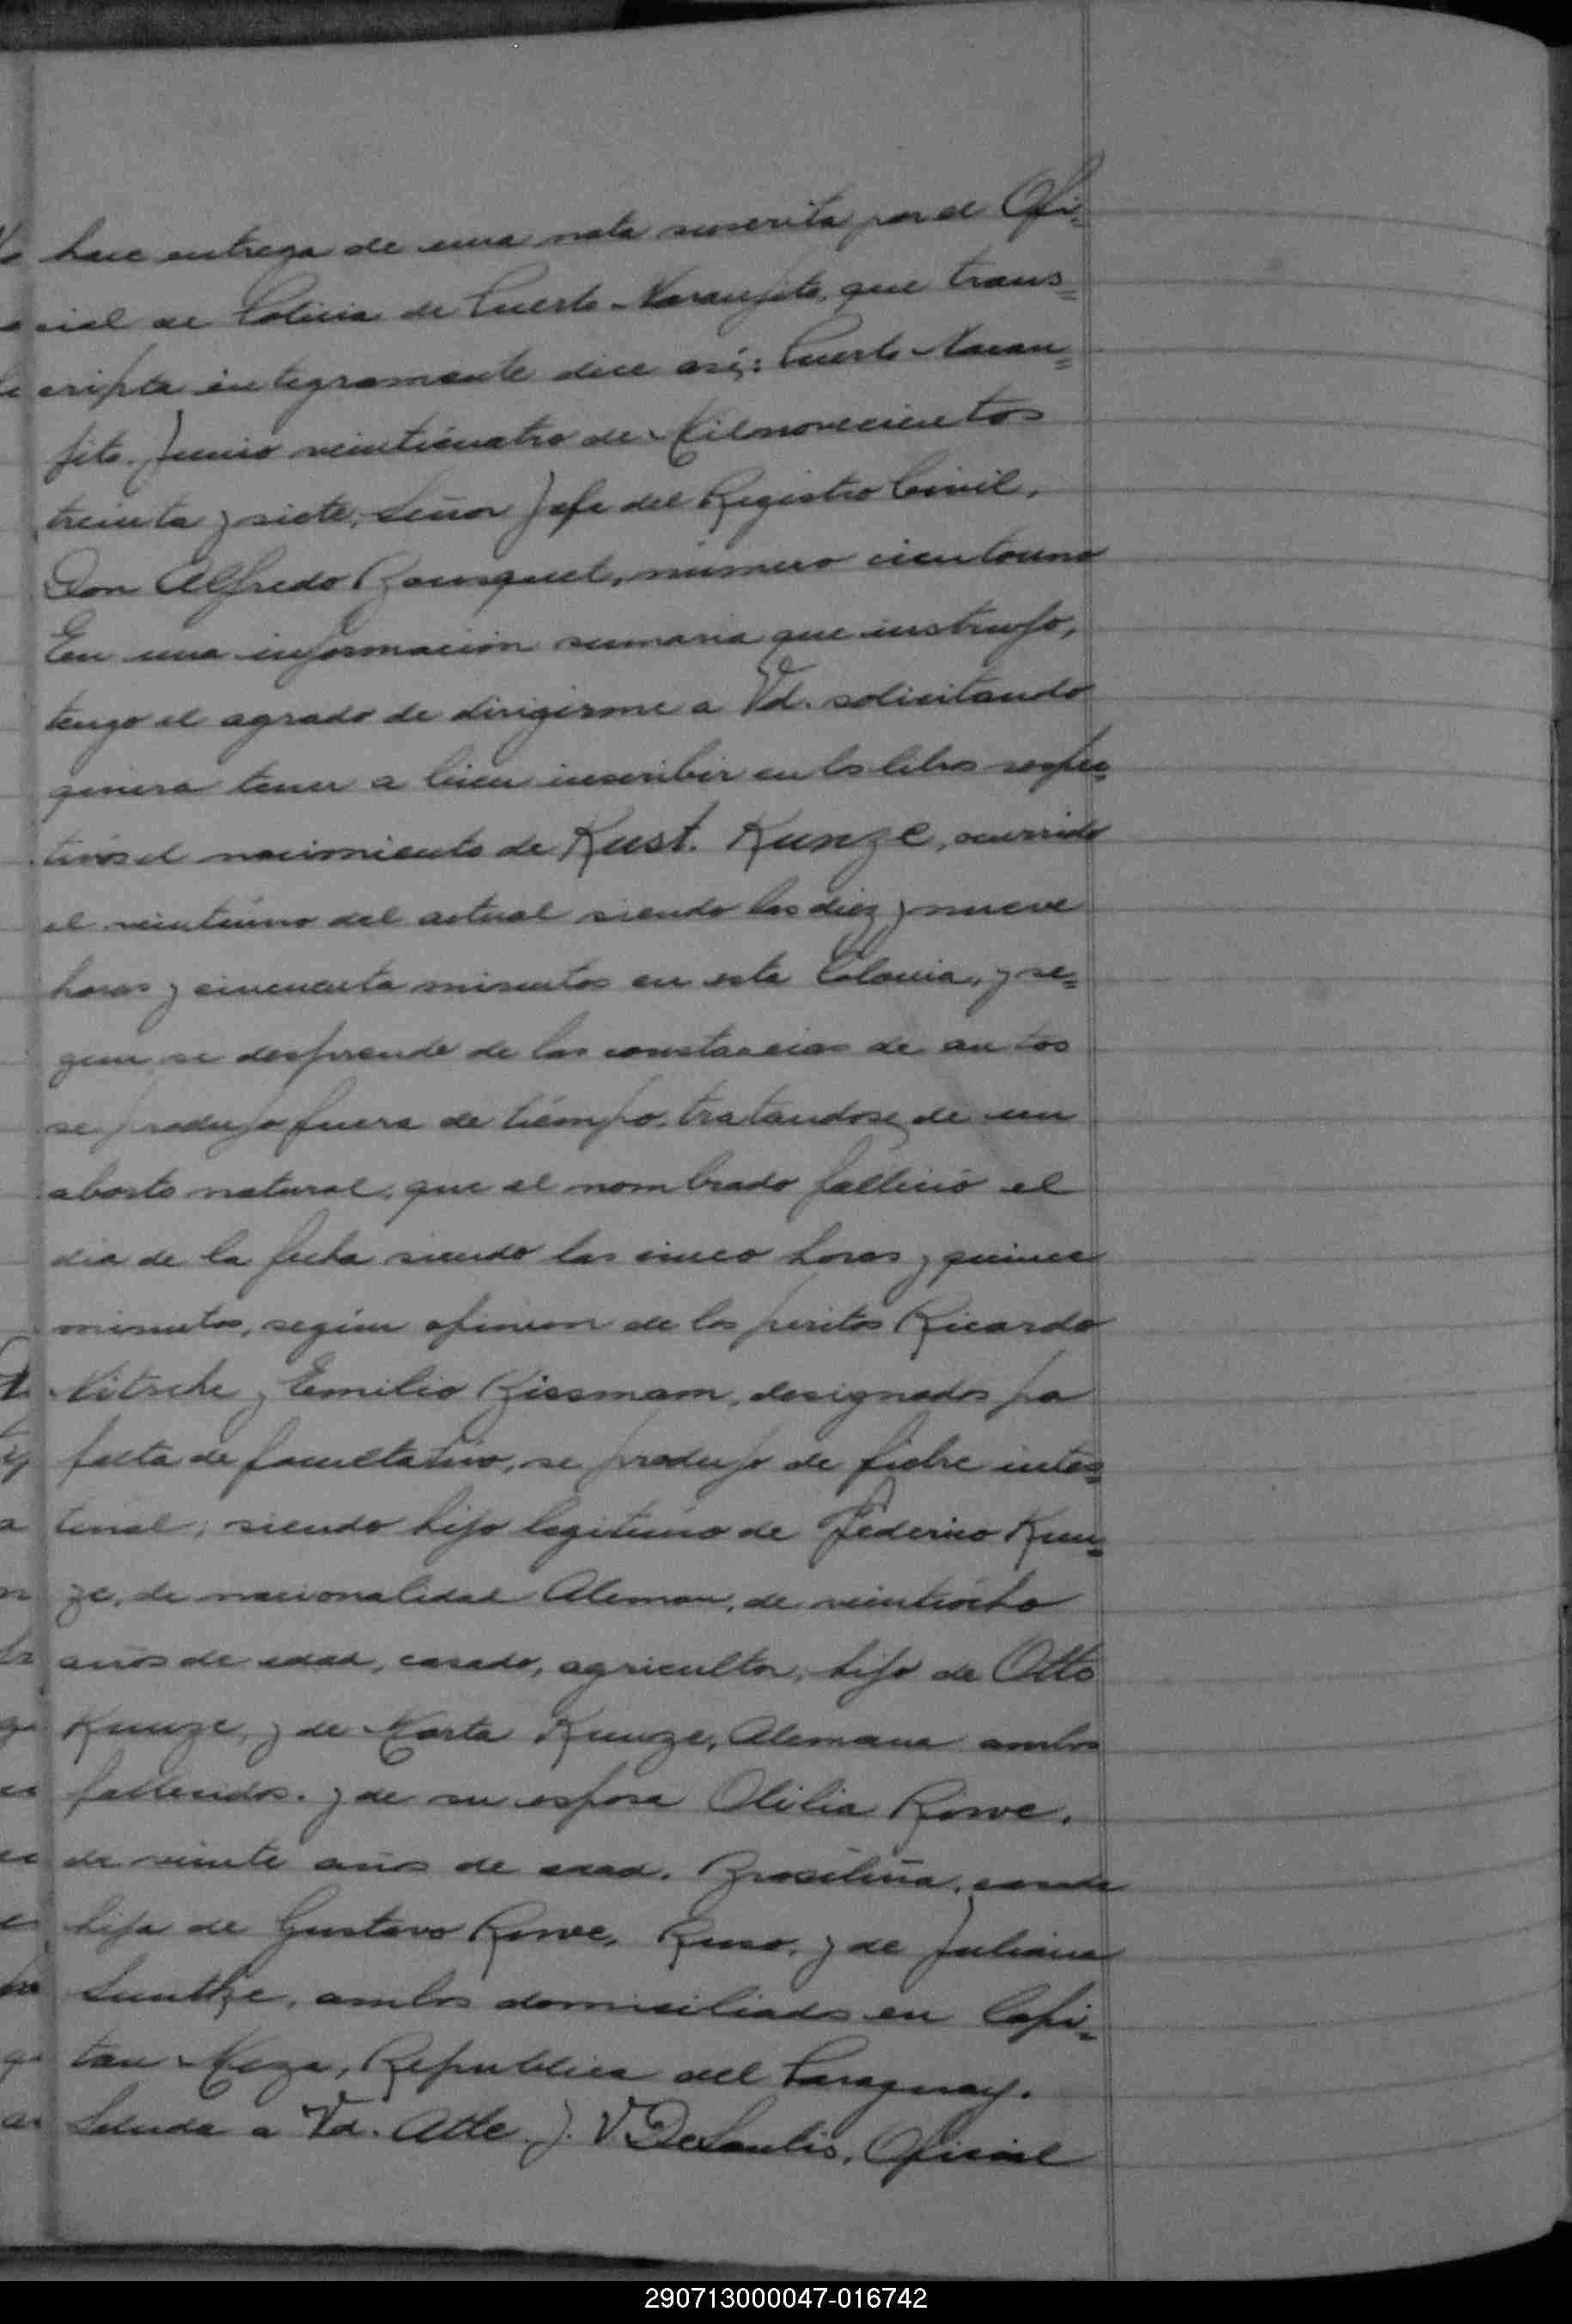 hace entrega de una nota suscrita por el Ofi=
cial de Policia de Puerto Naranjito, que trans=
cripta integramente dice asi: Puerto Naran=
jito. Junio veinticuatro de Milnovecientos
treinta y siete, Señor Jefe del Registro Civil,
Don Alfredo Bousquet, número cientouno
En una información sumaria que instruyo,
tengo el agrado de dirigirme a Vd. solicitando
quiera tener a bien inscribir en los libros respec=
tivos el nacimiento de Kust. Kunze, ocurrido
el veintiuno del actual siendo las diez y nueve
horas y cincuenta minutos en esta Colonia, y se=
gun se desprende de las constancias de autos
se produjo fuera de tiempo, tratandose de un
aborto natural, que el nombrado falleció el
dia de la fecha siendo las cinco horas y quince
minutos, según opinion de los peritos Ricardo
Nitsche y Emilio Rissmam, designados pa
falta de facultativo, se produjo de fiebre intes=
tinal; siendo hijo legitimo de Federico Kun=
ze, de nacionalidad Aleman, de veintiocho
años de edad, casado, agricultor, hijo de Otto
Kunze, y de Marta Kunze, Alemana ambos
fallecidos. y de su esposa Olilia Rowe,
de veinte años de edad. Brasileña, casada
hija de Gustavo Rowe, Ruso, y de Juliana
ambos domiciliados en Capi=
tan Meza, Republica del Paraguay.
Saluda a Vd. Atte. J. V. DeSantis, Oficial
290713000047-016742